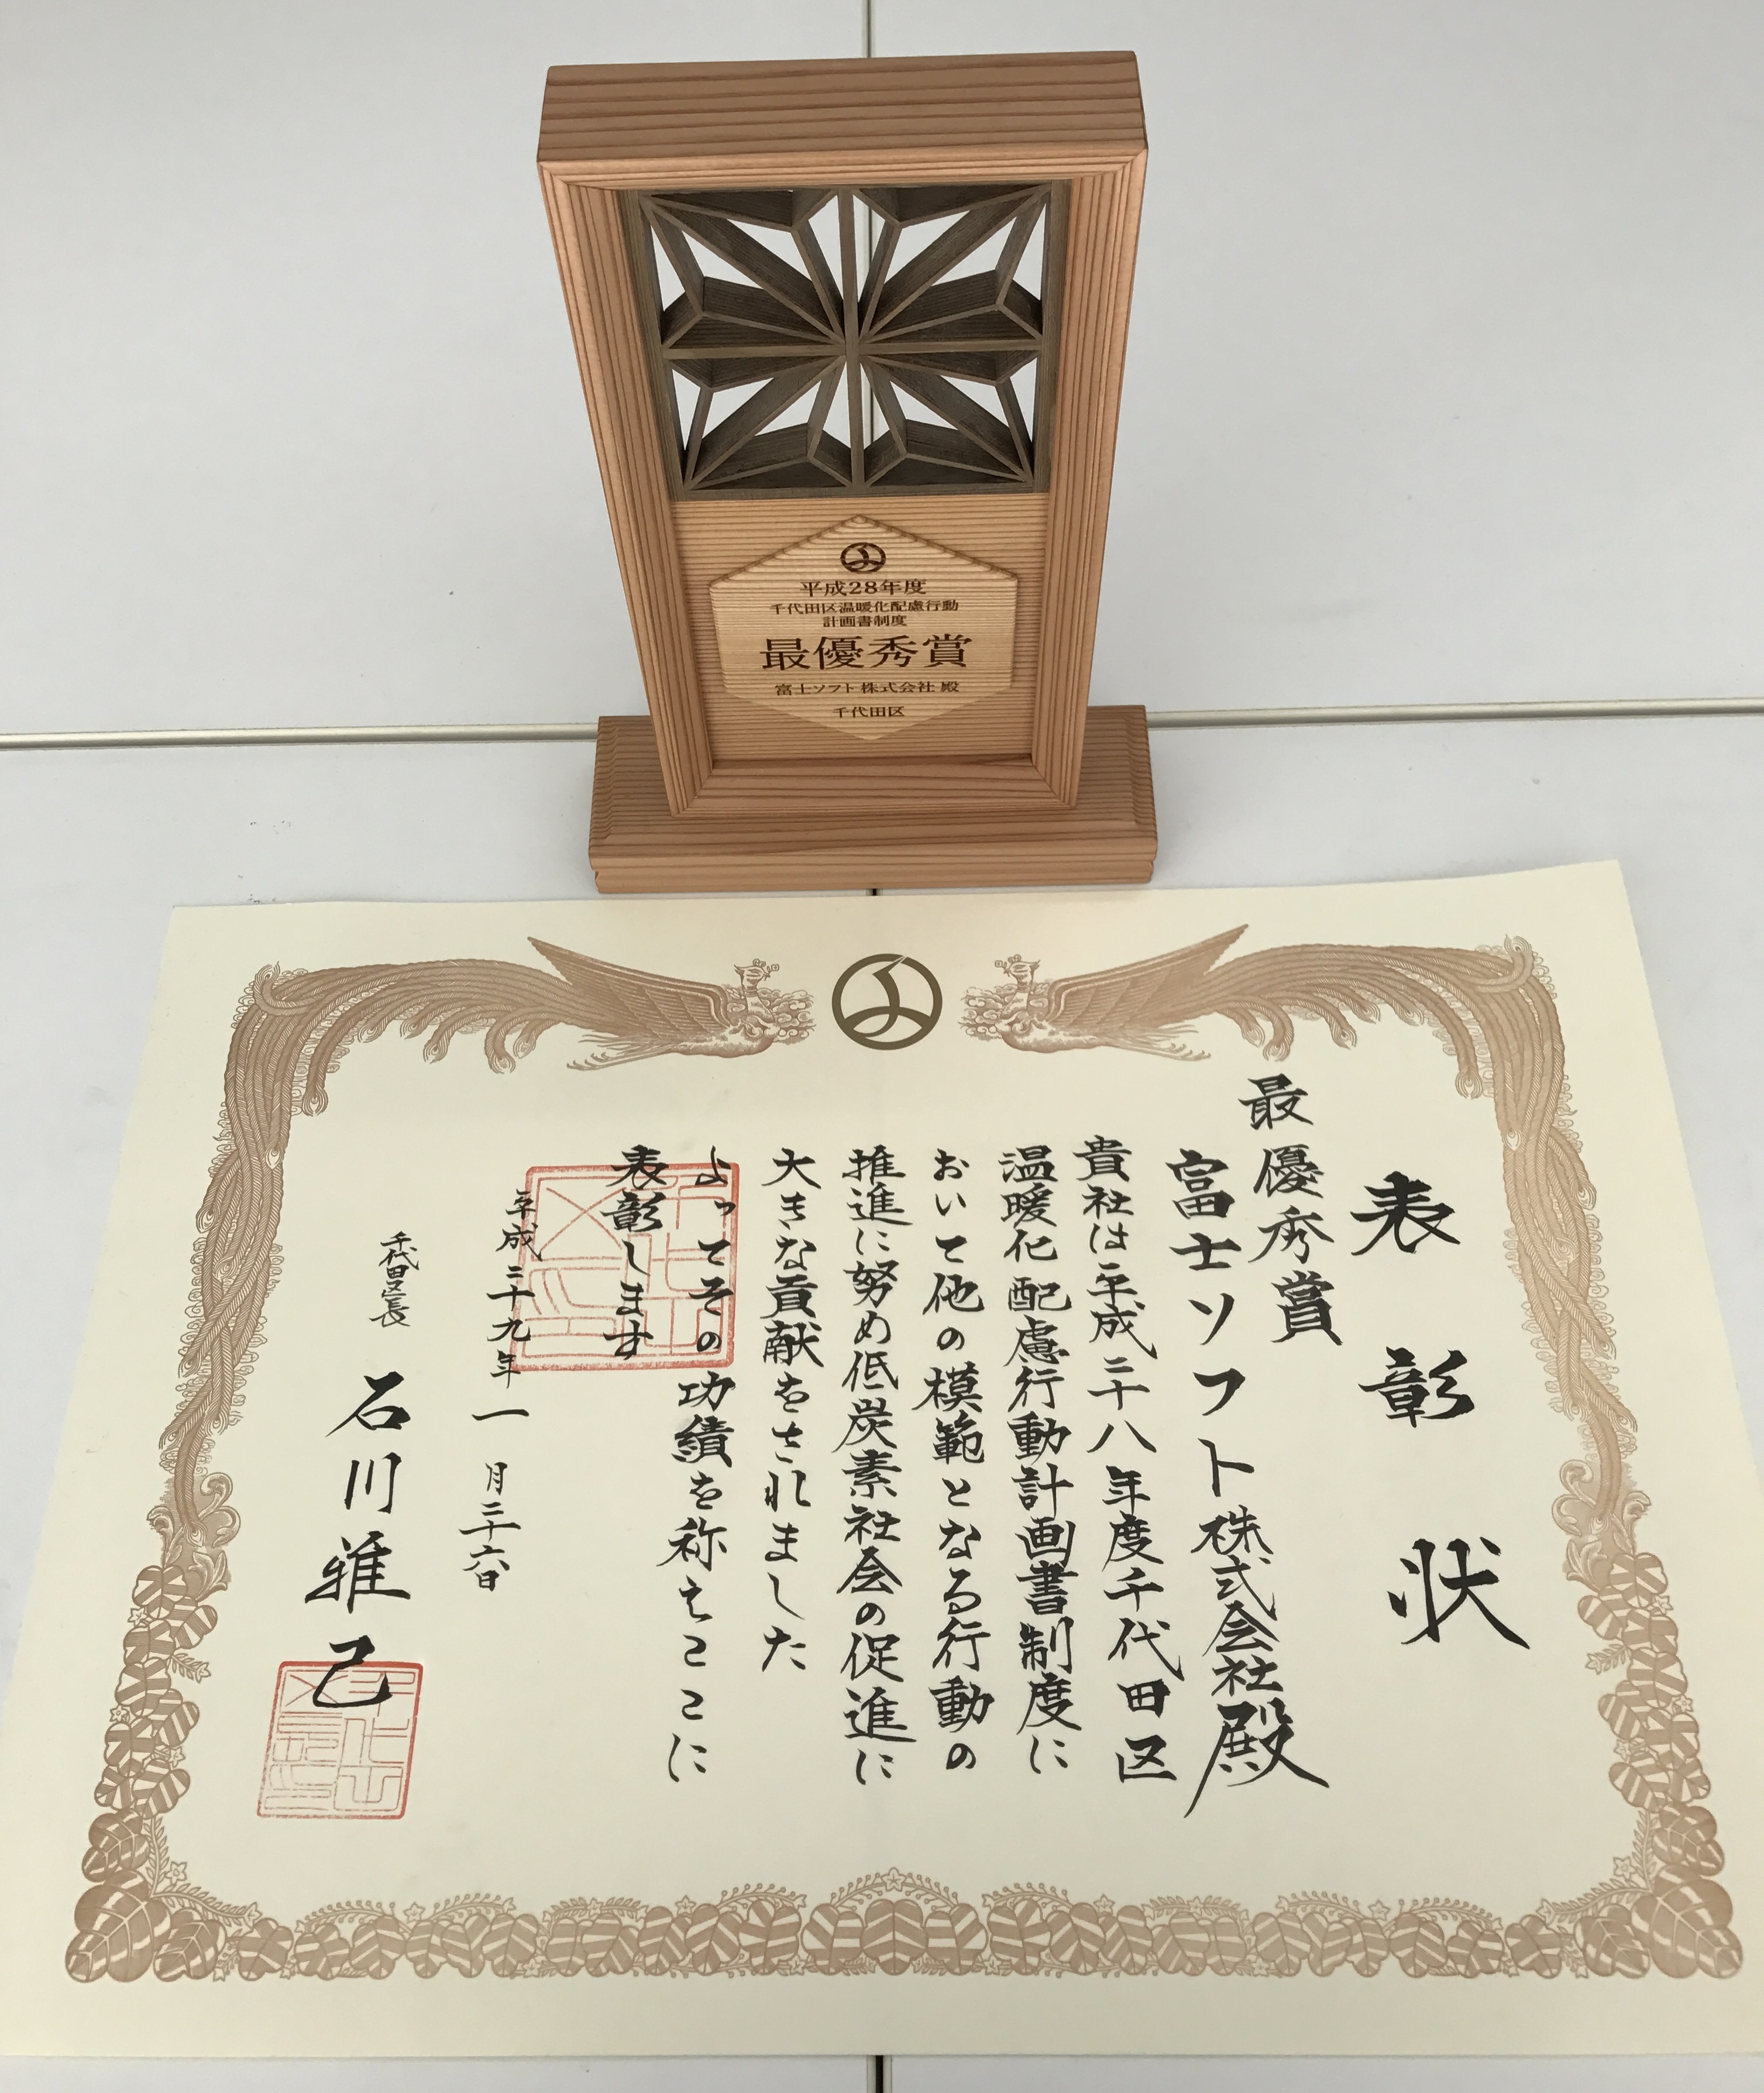 平成28年度
千代田区温暖化配慮行動
計画書制度
最優秀賞
富士ソフト株式会社 殿
千代田区
表彰状
最優秀賞
富士ソフト株式会社殿
貴社は平成二十八年度千代田区
温暖化配慮行動計画書制度に
おいて他の模範となる行動の
推進に努め低炭素社会の促進に
大きな貢献をされました
よってその功績を称えここに
表彰します
平成二十九年一月二十六日
千代田区長 石川雅己